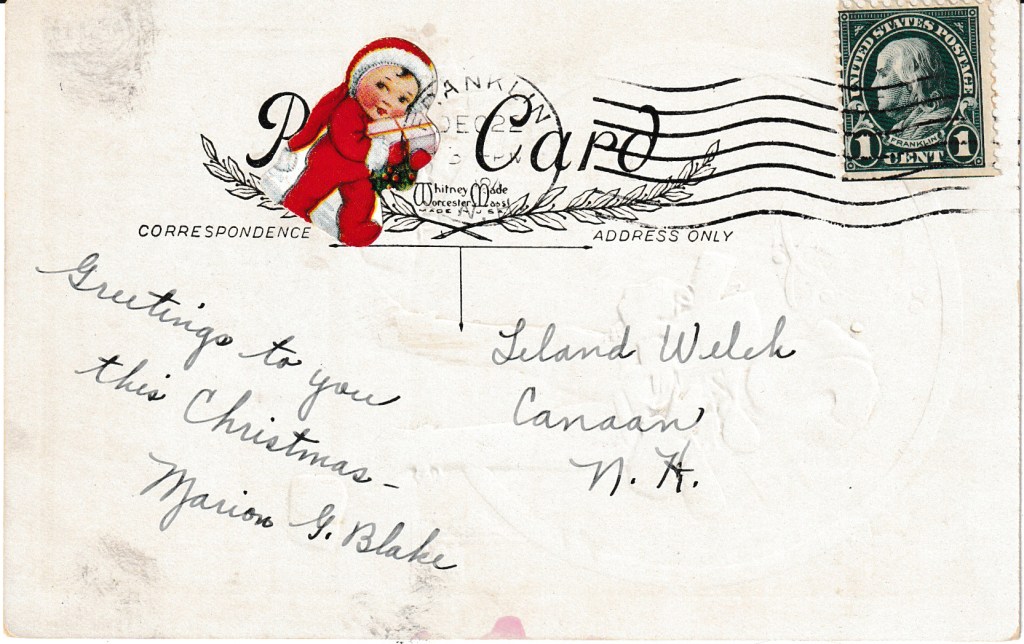 UNITED STATES POSTAGE
FRANKLIN
1 CENT 1
FRANKLIN
DEC 22
3 PM
Card
Whitney Made
Worcester, Mass
MADE IN USA
CORRESPONDENCE
ADDRESS ONLY
Greetings to you
this Christmas –
Marion G. Blake
Leland Welch
Canaan
N. H.